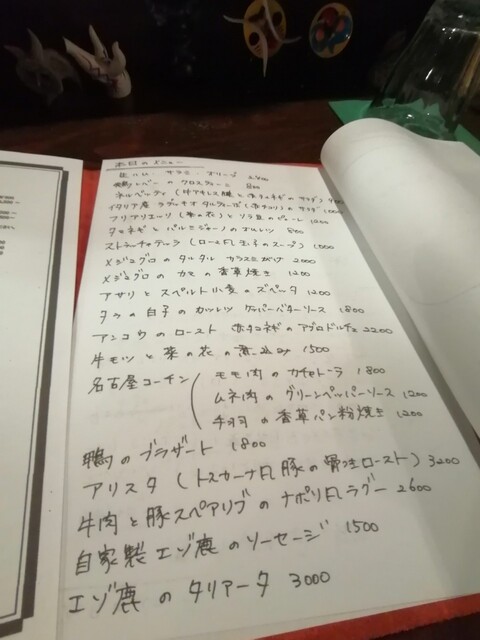 本日のメニュー
生ハム サラミ オリーブ
鴨レバーのクロスティーニ 800
ネルベッティ (牛アキレス腱と赤玉ネギのサラダ)
イタリア産 ラディキオ タルティーボ のサラダ
フリアリエーリ (菜の花) とソラ豆のピューレ 1200
タマネギとパルミジャーノのオムレツ 800
ストラッチャテッラ (ローマ風玉子のスープ) 1000
メジマグロのタルタル カラスミがけ 2000
メジマグロのカマの香草焼き 1200
アサリとスペルト小麦のズッパ 1200
タラの白子のカツレツ ケッパーバターソース 1800
アンコウのロースト 赤タマネギのアグロドルチェ 2200
牛モツと菜の花の煮込み 1500
名古屋コーチン
モモ肉のカチャトーラ 1800
ムネ肉のグリーンペッパーソース 1200
手羽の香草パン粉焼き 1200
鴨のブラザート 1800
アリスタ (トスカーナ風豚の骨付ロースト) 3200
牛肉と豚スペアリブのナポリ風ラグー 2600
自家製エゾ鹿のソーセージ 1500
エゾ鹿のタリアータ 3000